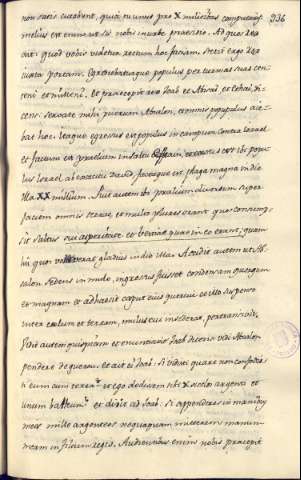 336
non satis curabunt, quia tu unus pro X millibus computaris
melius est enim ut sis nobis in urbe praesidio. Ad quos Rex
ait: quod vobis videtur rectum hoc faciam. Stetit ergo Rex
iuxta portam. Egrediebaturque populus per turmas suas cen-
teni et milleni. Et praecepit rex Joab et Abisai, et Ethai, di-
cens: servate mihi puerum Absalon, et omnis populus
hoc. Itaque egressus est populus in campum contra Israel
et factum est praelium in saltu Efraim, et caesus est ibi popu-
lus Israel ab exercitu David, factaque est plaga magna in die
illa XX millium. Fuit autem ibi praelium dispersum super
faciem omnis terrae, et multo plures erant quos consump-
sit saltus
hi quos gladius in die illa. Accidit autem ut Ab-
salon sedens in mulo, ingressus fuisset condensam quercum
et magnam et adhaesit caput eius quercui et illo suspenso
inter coelum et terram, mulus cui insederat, pertransivit.
Vidit autem quispiam et nuntiavit Joab dicens vidi Absalon
pendere de quercu. et ait ei Joab: si vidisti quare non confodis-
ti eum cum terra et ego dedissem tibi X siclos argenti et
unum balteum et dixit ad Joab. Si appenderes in manibus
meis mille argenteos nequaquam mitterem manum
meam in filium regis. Audientibus enim nobis praecepit